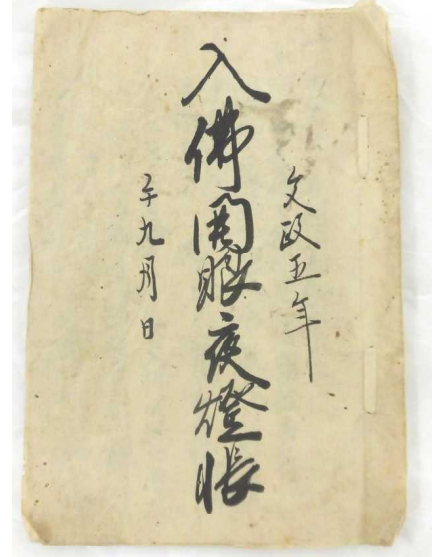 文政五年
入佛開眼夜燈帳
午九月日